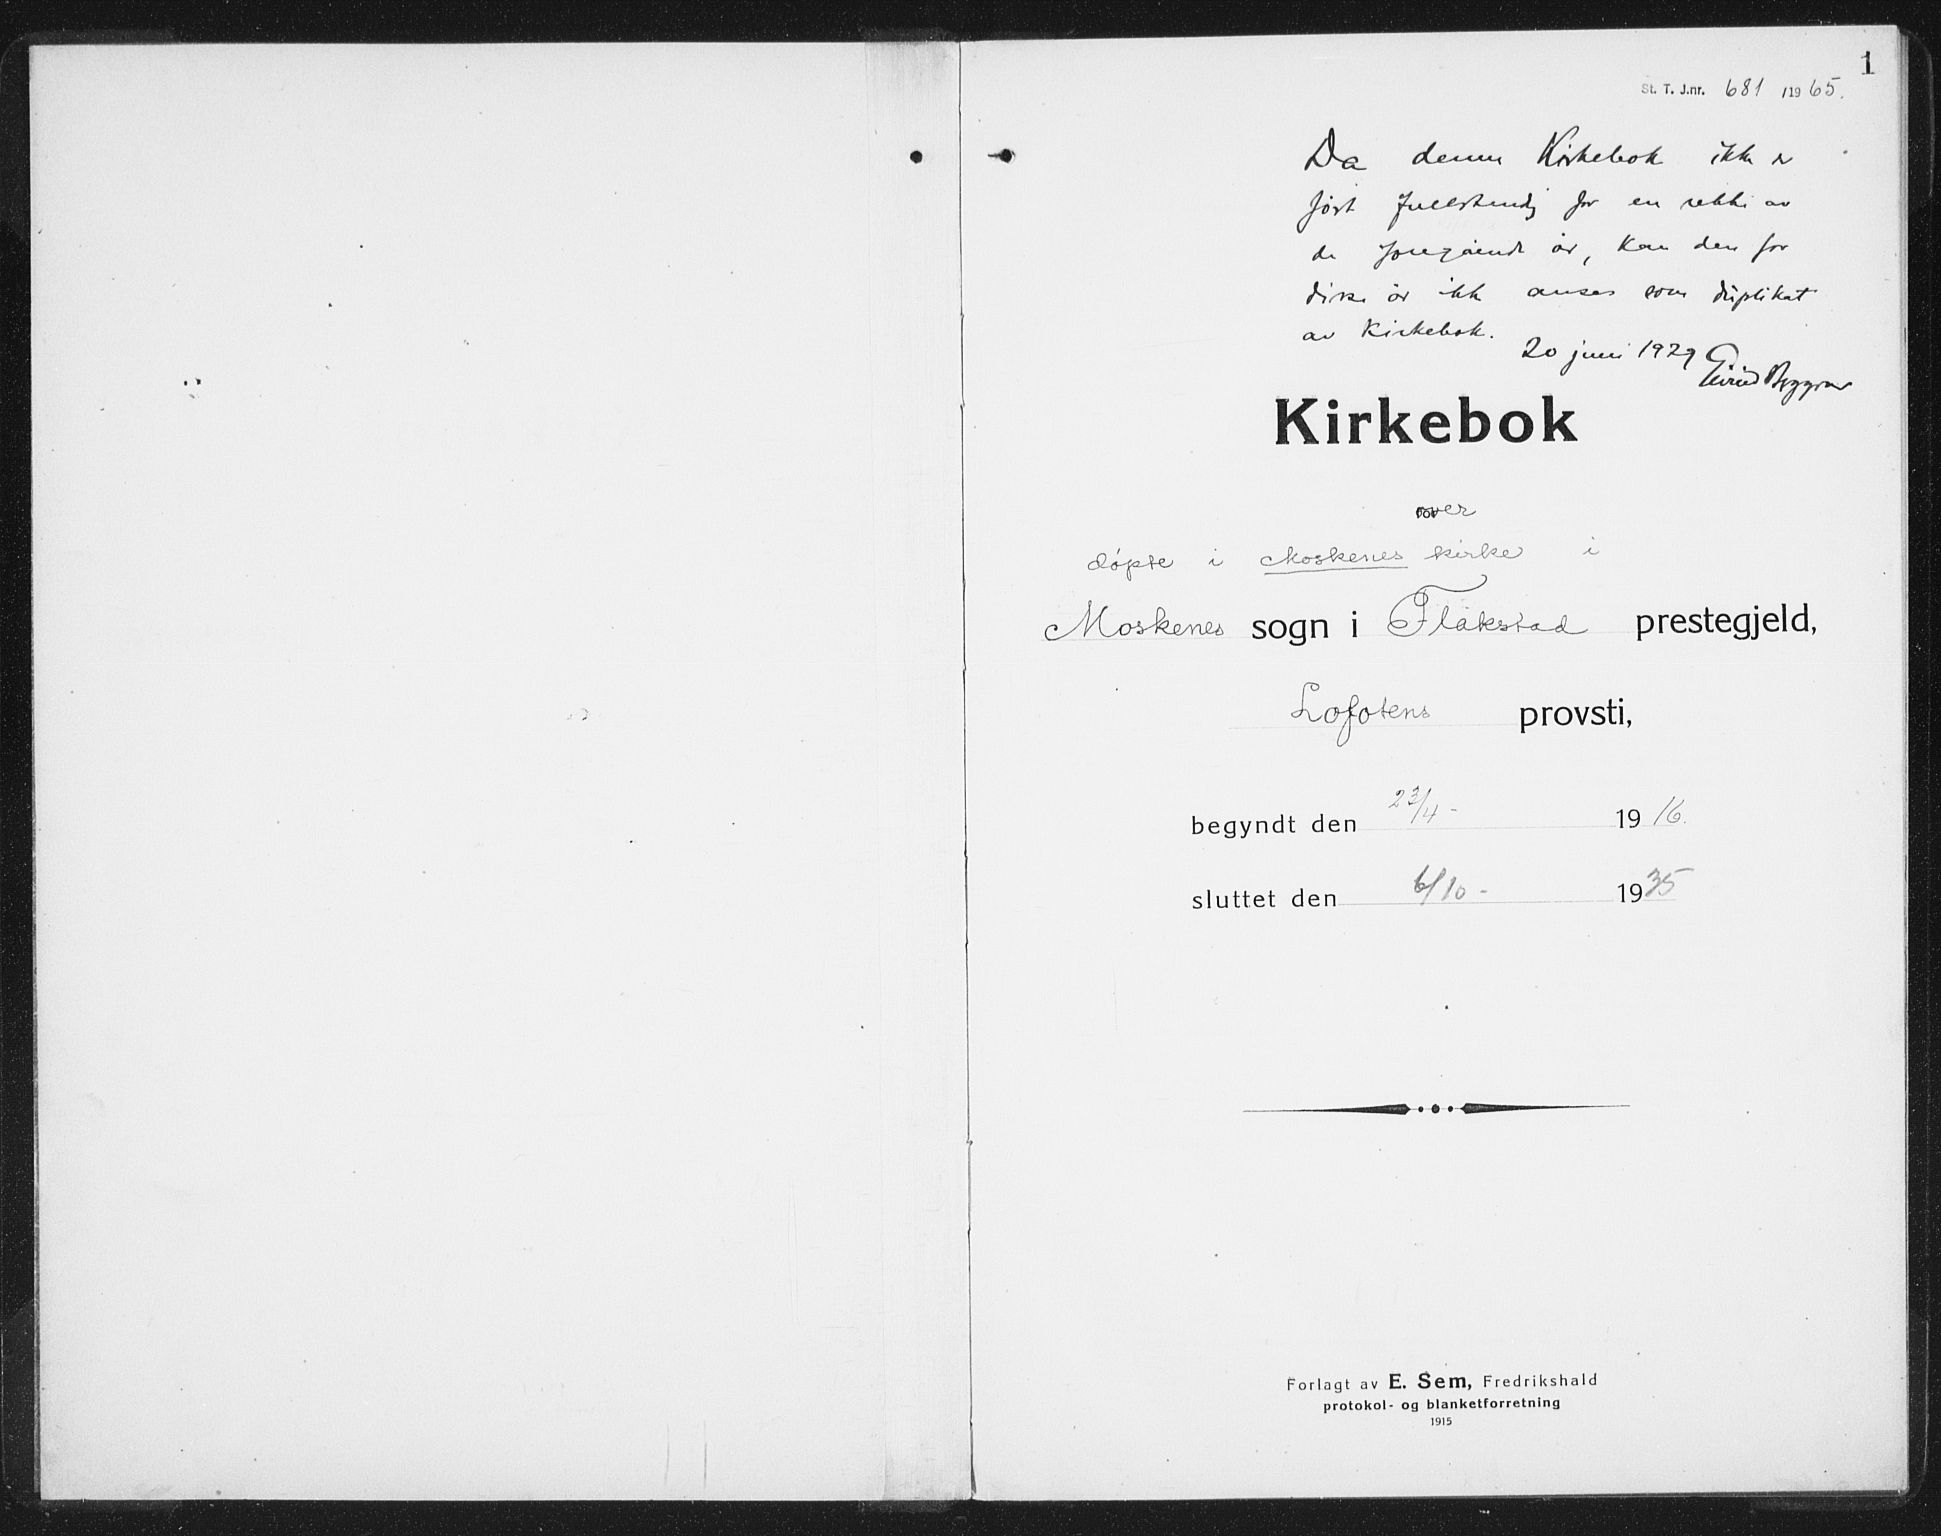 1
St. T. J.nr. 681 /1965.
Da denne Kirkebok ikke er
ført fullstendig for en rekke av
de foregående år, kan den for
disse år ikke anses som duplikat
av Kirkebok.
20 juni 1929
Kirkebok
over
døpte i Moskenes kirke i
Moskenes sogn i Flakstad prestegjeld,
Lofotens provsti,
begyndt den 23/4 - 1916.
sluttet den 6/10 - 1935
Forlagt av E. Sem, Fredrikshald
protokol- og blanketforretning
1915